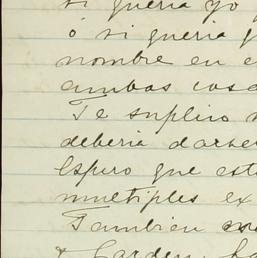 si queria yo
ó si queria
nombre en e
ambas cosa
Te suplico
deberia darse
Espero que est
multiples ex
Tambien
Carden